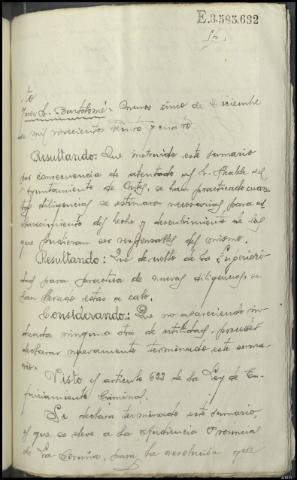 E.3.585.632
Juez Sr. Bartolomé. Ordenes cinco de diciembre
de mil novecientos treinta y cuatro.
Resultando: Que instruido este sumario
por consecuencia de atentado al Sr. Alcalde del
Ayuntamiento de se han practicado cuan-
tas diligencias se estimaron necesarias para el
esclarecimiento del hecho y descubrimiento de los
que pudieran ser responsables del mismo.
Resultando: Que devuelto de la Superiori-
dad para práctica de nuevas diligencias, se
han llevado estas a cabo.
Considerando: Que no apareciendo in-
dicada ninguna otra de utilidad, procede
declarar nuevamente terminado este suma-
rio.
Visto el artículo 622 de la Ley de En-
juiciamiento Criminal.
Se declara terminado este sumario,
el que se eleve a la Audiencia Provincial
de La Coruña, para la resolución que